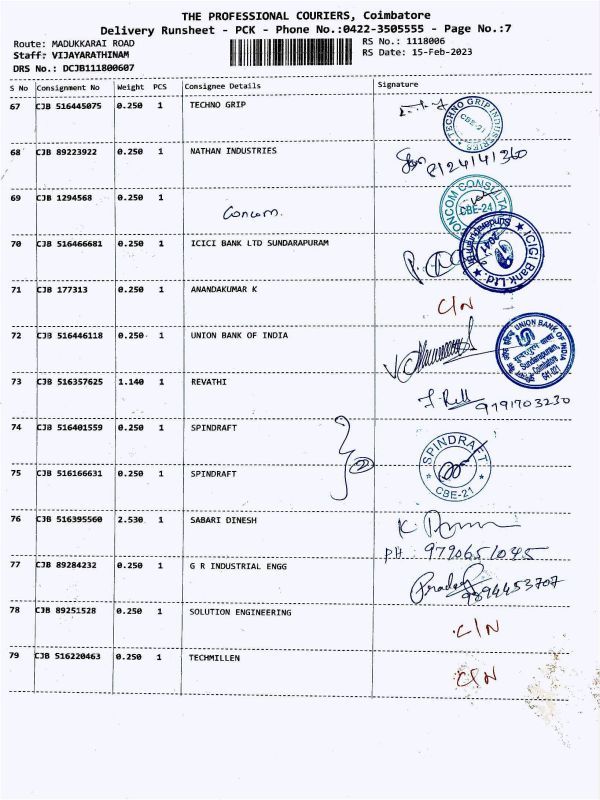 THE PROFESSIONAL COURIERS, Coimbatore
Delivery Runsheet - PCK - Phone No.:0422-3505555 - Page No.:7
Route: MADUKKARAI ROAD
RS No.: 1118006
Staff: VIJAYARATHINAM
RS Date: 15-Feb-2023
DRS No.: DCJB111800607
S No Consignment No Weight PCS Consignee Details Signature
67 CJB 516445075 0.250 1 TECHNO GRIP
TECHNO GRIP INDUSTRIES CBE-21
68 CJB 89223922 0.250 1 NATHAN INDUSTRIES
8124141360
69 CJB 1294568 0.250 1
Concom.
CONCOM CONSULTA
CBE-24
70 CJB 516466681 0.250 1 ICICI BANK LTD SUNDARAPURAM
ICICI Bank Ltd.
71 CJB 177313 0.250 1 ANANDAKUMAR K
C/N
72 CJB 516446118 0.250 1 UNION BANK OF INDIA
UNION BANK OF INDIA
Sundarapuram,
Coimbatore
641 021
73 CJB 516357625 1.140 1 REVATHI
9791703230
74 CJB 516401559 0.250 1 SPINDRAFT
75 CJB 516166631 0.250 1 SPINDRAFT
SPINDRAFT
CBE-21
76 CJB 516395560 2.530 1 SABARI DINESH
PH: 9790651045
77 CJB 89284232 0.250 1 G R INDUSTRIAL ENGG
9894453707
78 CJB 89251528 0.250 1 SOLUTION ENGINEERING
C/N
79 CJB 516220463 0.250 1 TECHMILLEN
C/N